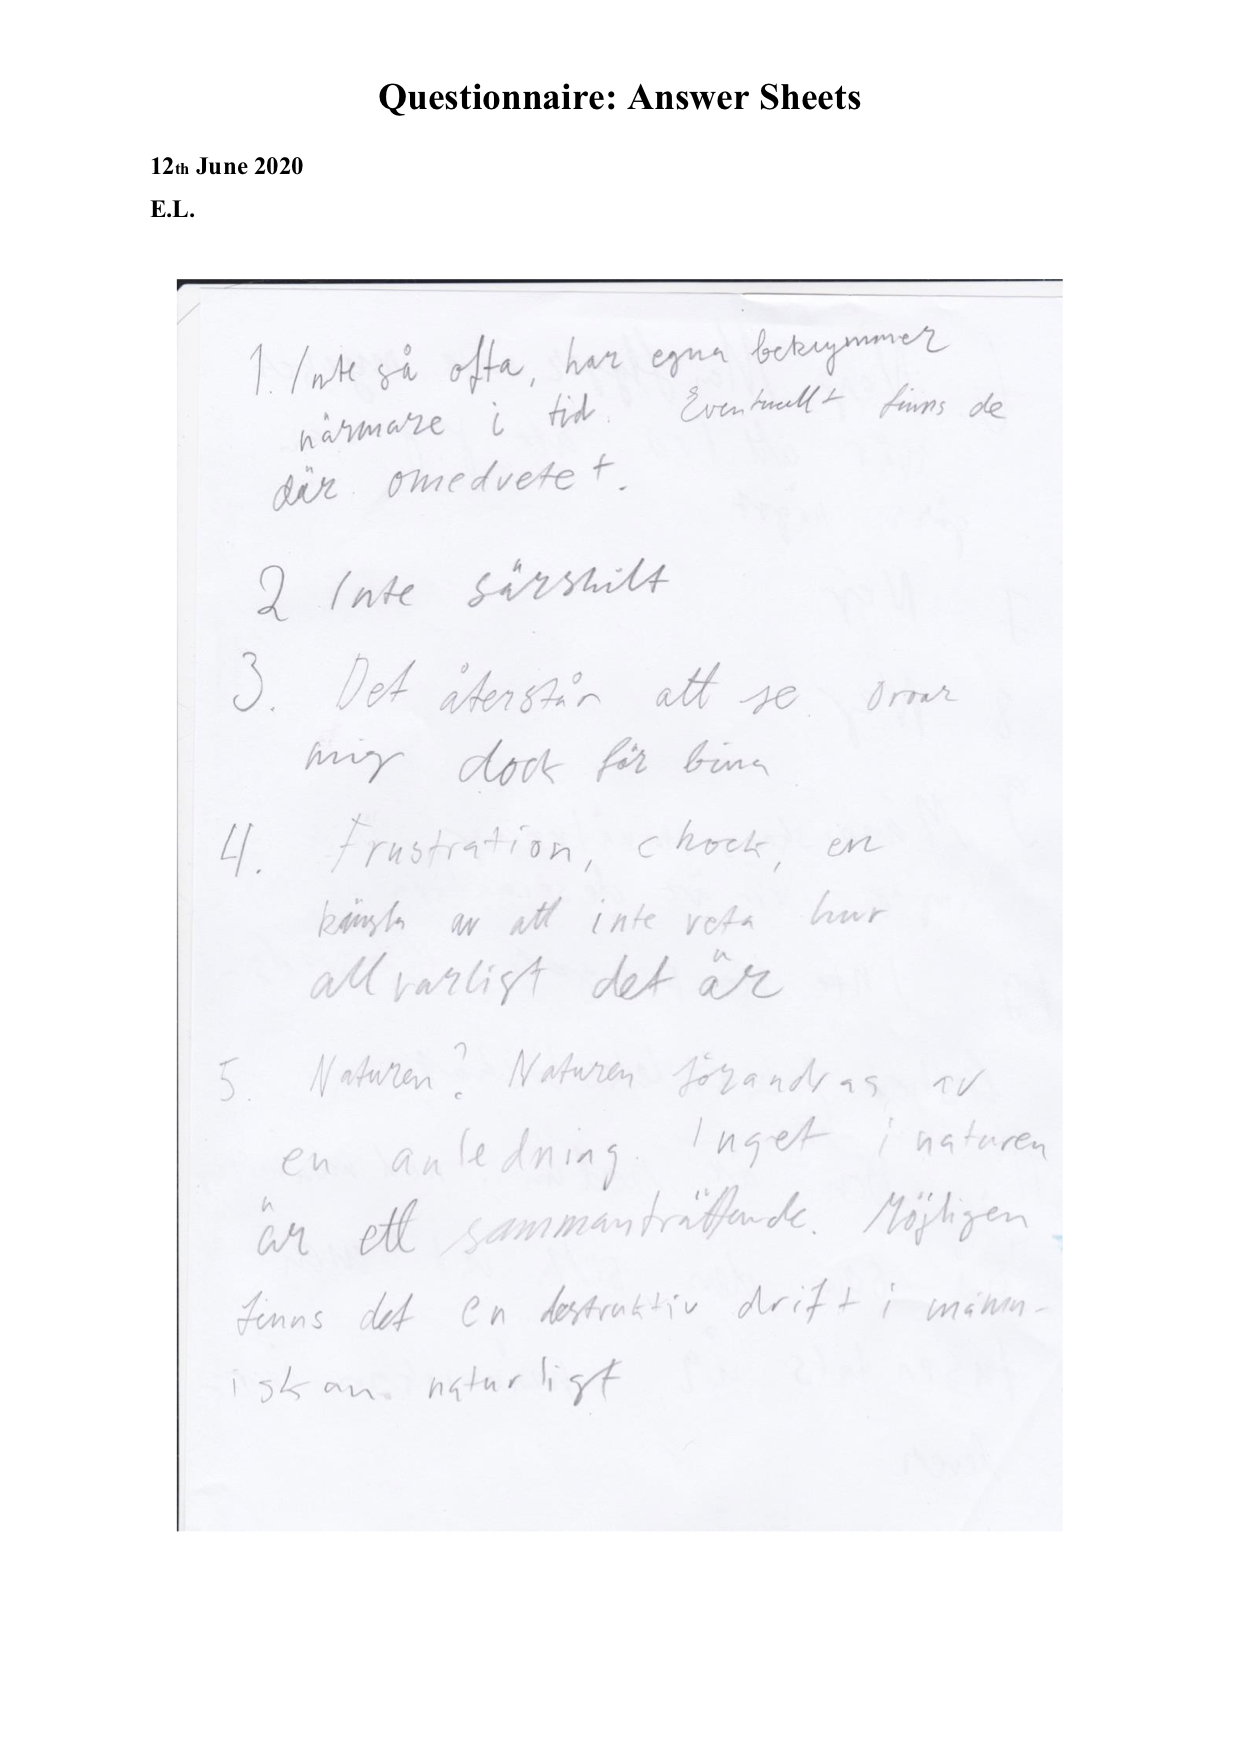 Questionnaire: Answer Sheets
12th June 2020
E.L.
1. Inte så ofta, har egna bekymmer
närmare i tid. Eventuellt finns de
där omedvetet.
2 Inte särskilt
3. Det återstår att se oroar
mig dock för bina
4. Frustration, chock, en
känsla av att inte veta hur
allvarligt det är
5. Naturen? Naturen förändras av
en anledning. Inget i naturen
är ett sammanträffande. Möjligen
finns det en destruktiv drift i männ-
iskan naturligt